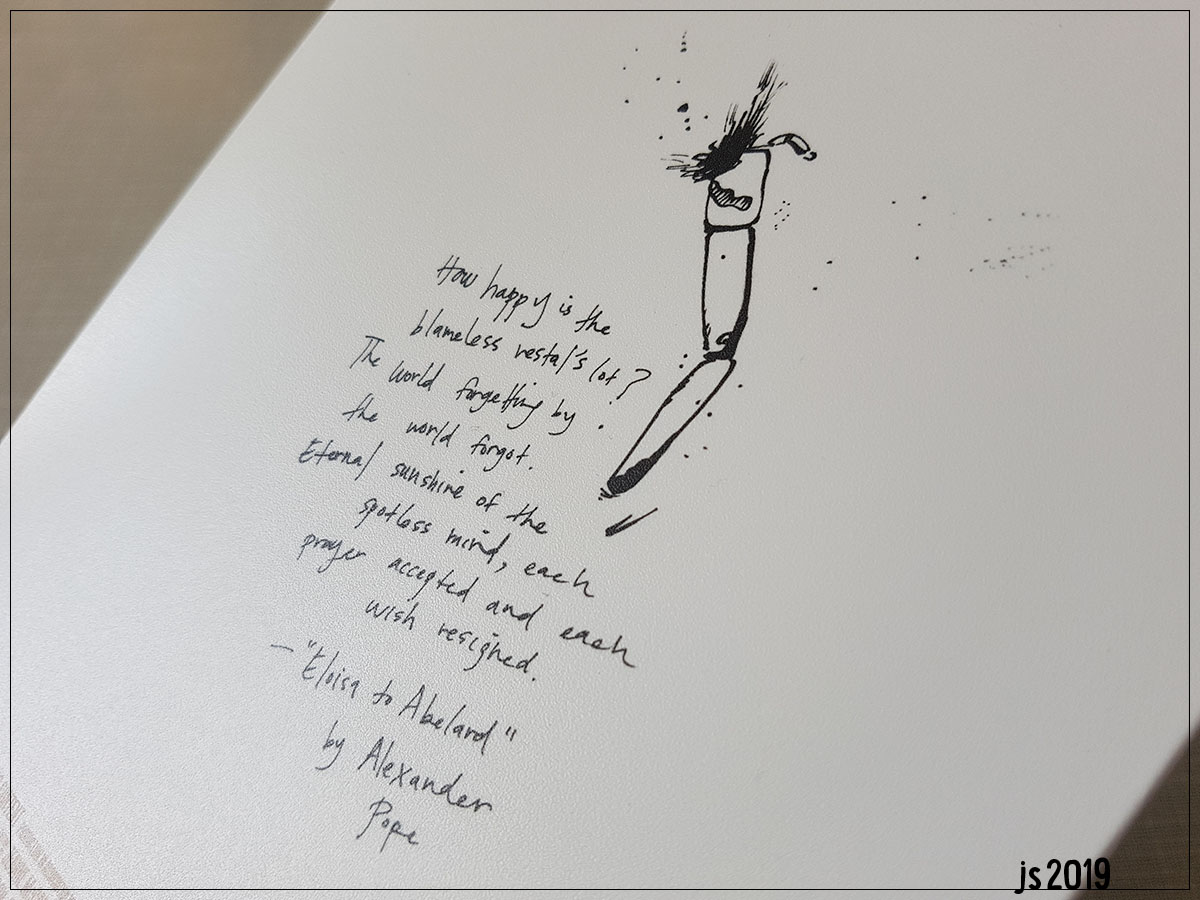 How happy is the
blameless vestal's lot?
The world forgetting by
the world forgot.
Eternal sunshine of the
spotless mind, each
prayer accepted and each
wish resigned.
— "Eloisa to Abelard"
by Alexander
Pope
js 2019